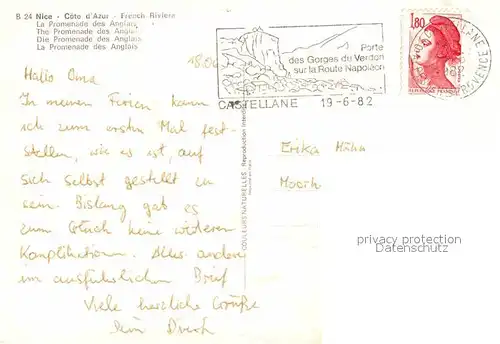 B 24 Nice - Côte d'Azur - French Riviera
La Promenade des Anglais
The Promenade des Anglais
Die Promenade des Anglais
La Promenade des Anglais
18.06
Hallo Oma
In meinen Ferien kann
ich zum ersten Mal fest-
stellen, wie es ist, auf
sich selbst gestellt zu
sein. Bislang gab es
zum Glück keine weiteren
Komplikationen. Alles andere
im ausführlichen Brief
Viele herzliche Grüße
Dein
Porte
des Gorges du Verdon
sur la Route Napoléon
CASTELLANE 19-6-82
1,80
CASTELLANE
PROVENCE
COULEURS NATURELLES. Reproduction interdite
Erika
privacy protection
Datenschutz